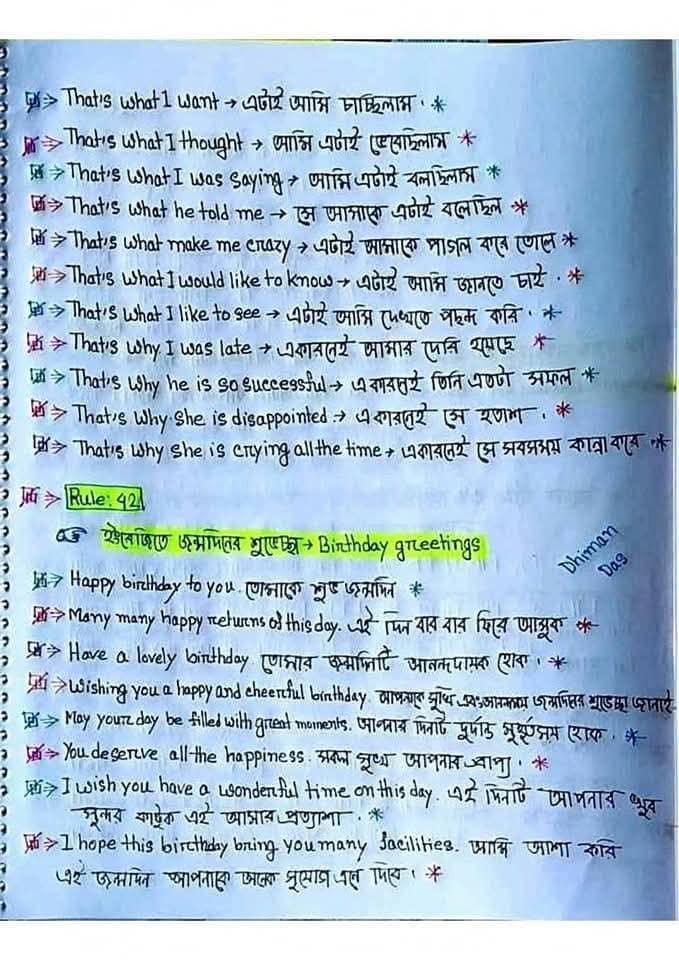 That's what I want → এটাই আমি চাচ্ছিলাম . *
That's what I thought → আমি এটাই ভেবেছিলাম *
That's what I was saying → আমি এটাই বলছিলাম *
That's what he told me → সে আমাকে এটাই বলেছিল *
That's what make me crazy → এটাই আমাকে পাগল করে তোলে *
That's what I would like to know → এটাই আমি জানতে চাই . *
That's what I like to see → এটাই আমি দেখতে পছন্দ করি . *
That's why I was late → একারনেই আমার দেরি হয়েছে *
That's why he is so successful → একারনেই তিনি এতটা সফল *
That's why she is disappointed → একারনেই সে হতাশ . *
That's why she is crying all the time → একারনেই সে সবসময় কান্না করে . *
Rule: 42
ইংরেজিতে জন্মদিনের শুভেচ্ছা → Birthday greetings
Dhiman
Das
Happy birthday to you. তোমাকে শুভ জন্মদিন *
Many many happy returns of this day. এই দিন বার বার ফিরে আসুক *
Have a lovely birthday. তোমার জন্মদিনটি আনন্দদায়ক হোক . *
Wishing you a happy and cheerful birthday. আপনাকে সুখি এবং আনন্দময় জন্মদিনের শুভেচ্ছা জানাই.
May your day be filled with great moments. আপনার দিনটি দুর্দান্ত মুহূর্তময় হোক . *
You deserve all the happiness. সকল সুখ আপনার প্রাপ্য . *
I wish you have a wonderful time on this day. এই দিনটি আপনার খুব
সুন্দর কাটুক এই আমার প্রত্যাশা . *
I hope this birthday bring you many facilities. আমি আশা করি
এই জন্মদিন আপনাকে অনেক সুযোগ এনে দিবে . *